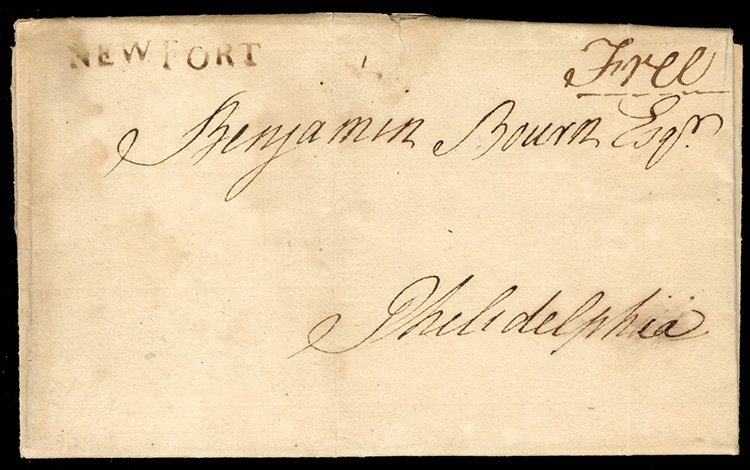 NEWPORT
Free
Benjamin Bourn Esqr.
Philidelphia